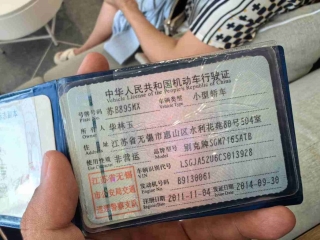 中华人民共和国机动车行驶证
Vehicle License of the People's Republic of China
号牌号码 苏B895MX 车辆类型 小型轿车
Vehicle Type
所有人 华林玉
住址 江苏省无锡市惠山区水利花苑80号504室
使用性质 非营运 品牌型号 别克牌SGM7165ATB
车辆识别代号 LSGJA52U6CS013928
VIN
江苏省无锡
市公安局交通
发动机号码 B9130061
Engine No.
注册日期 2011-11-04 发证日期 2014-09-30